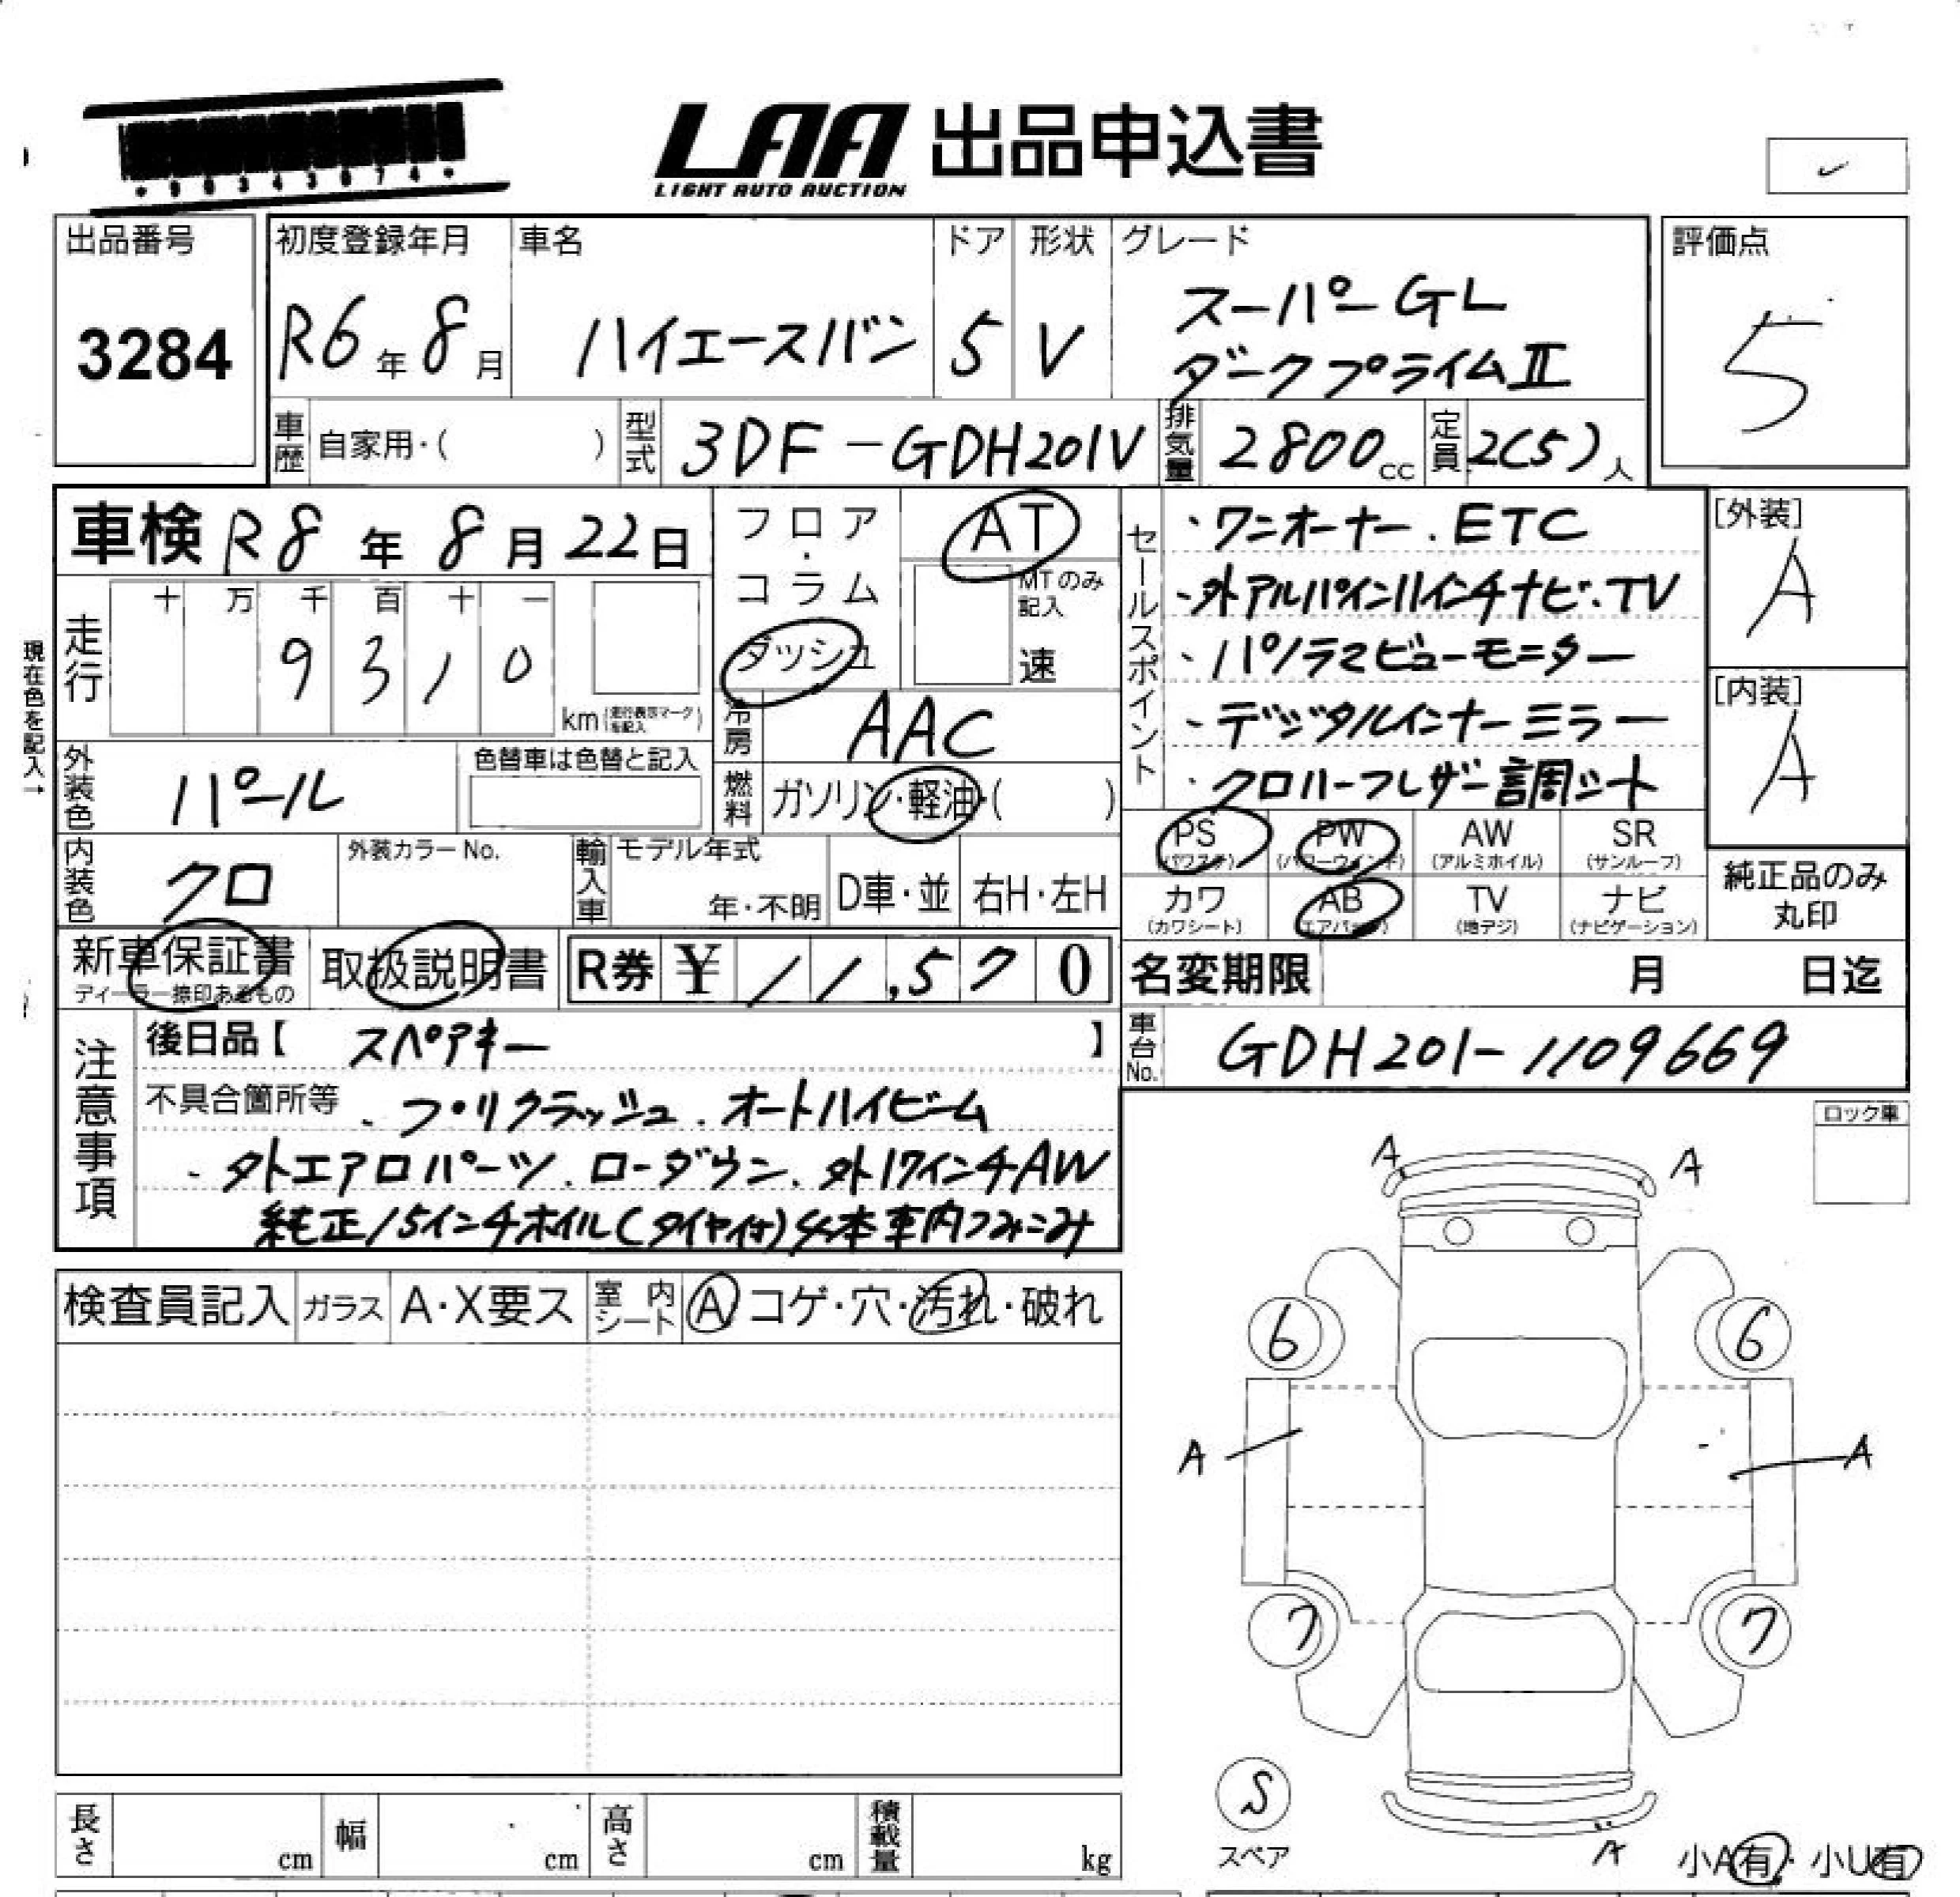 *90343074*
LAA 出品申込書
LIGHT AUTO AUCTION
出品番号
3284
初度登録年月
R6年8月
車名
ハイエースバン
ドア
5
形状
V
グレード
スーパーGL
ダークプライムⅡ
評価点
5
車歴 自家用・( )
型式 3DF-GDH201V
排気量 2800cc
定員 2(5)人
車検 R8年8月22日
フロア・コラム
ダッシュ
AT
MTのみ記入
速
走行
十 万 千 百 十 一
9 3 1 0
km(走行表示マークを記入)
現在色を記入→
冷房 AAC
外装色 パール
色替車は色替と記入
燃料 ガソリン・軽油・( )
内装色 クロ
外装カラーNo.
輸入車
モデル年式
年・不明
D車・並
右H・左H
セールスポイント
・ワンオーナー.ETC
・外アルパイン11インチナビ.TV
・パノラマビューモニター
・デジタルインナーミラー
・クロハーフレザー調シート
[外装]
A
[内装]
A
PS
(パワステ)
PW
(パワーウインド)
AW
(アルミホイル)
SR
(サンルーフ)
カワ
(カワシート)
AB
(エアバッグ)
TV
(地デジ)
ナビ
(ナビゲーション)
純正品のみ
丸印
新車保証書
ディーラー捺印あるもの
取扱説明書
R券 ¥ 11,570
名変期限 月 日迄
車台No. GDH201-1109669
注意事項
後日品【 スペアキー 】
不具合箇所等 .プリクラッシュ.オートハイビーム
・外エアロパーツ.ローダウン.外17インチAW
純正15インチホイル(タイヤ付)4本車内つみこみ
ロック車
検査員記入
ガラス A・X要ス
室内シート A コゲ・穴・汚れ・破れ
A A
6 6
A A
7 7
S
スペア
A
小A有・小U有
長さ cm
幅 cm
高さ cm
積載量 kg